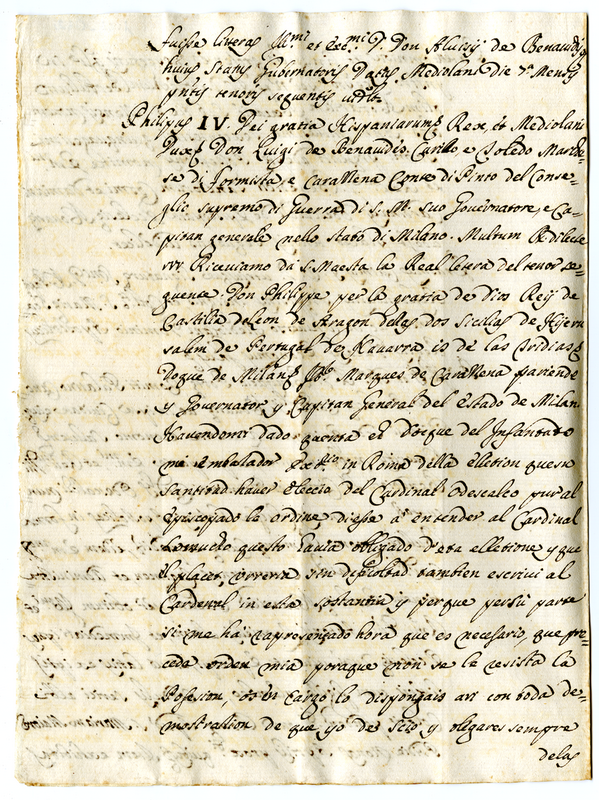 fuisse literas Ill.mi et Ecc.mi D. Don Aluisij de Benauidis
huius Status Gubernatoris Datas Mediolani die 7.a Mensis
tenoris sequentis
Philipus IV. Dei gratia Hispaniarum Rex, et Mediolani
Dux Don Luigi de Benauidis Carillo e Toledo Marche=
se di Formista, e CaraVena Conte di Pinto del Conse=
glio supremo di Guerra di S. M. suo Gouernatore, e Ca=
pitan generale nello stato di Milano. Multum R. dilecte
Riceuiamo da S. Maesta la Real letera del tenor se=
guente. Don Philippe per la gratia de Dios Rej de
Castilia de Leon de Aragon delas dos Sicilias de Hijeru
salem de Portugal de Nauarra
Duque de Milan Marques de CaraVena pariende
y Gouernator y Capitan General del Estado de Milan
Hauendomi dado quenta el Duque del Infantado
mi Embaxador in Roma della Election que su
Santitad hauer Eleccio del Cardinal Odescalco pur al
Episcopado la ordine diesse a entender al Cardinal
questo hauia obligado d'esta elletione y que
il placet correra sin dificoltad tambien escriui al
Cardenal in esta sostantia y perque persu parte
si me ha rapresentado hora que es necesario, que pre=
ceda orden mia poraque non se le resista la
Posesion, os en cargo lo dispongais asi con toda de=
mostrastion de que yo de y obligares sempre
delas